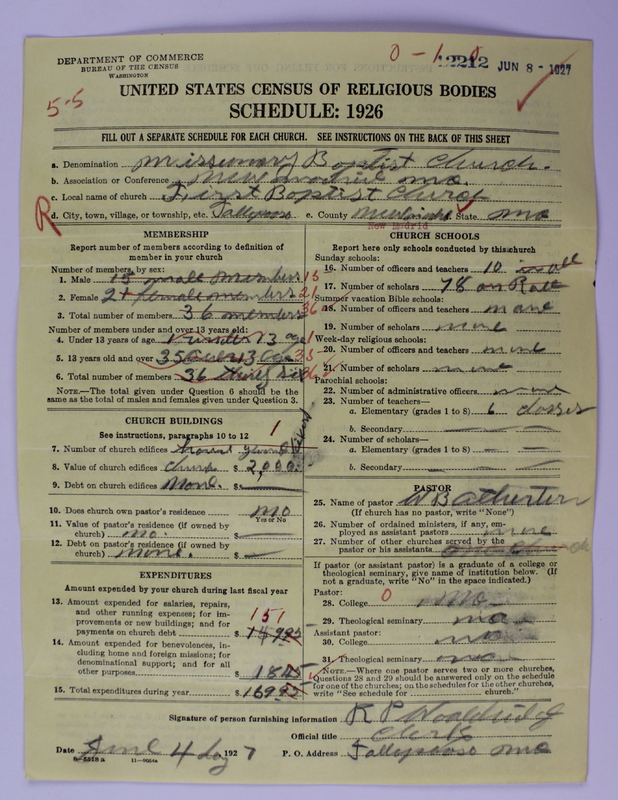 DEPARTMENT OF COMMERCE
BUREAU OF THE CENSUS
WASHINGTON
0-1-0
12212 JUN 8 - 1927
5-5
UNITED STATES CENSUS OF RELIGIOUS BODIES
SCHEDULE: 1926
FILL OUT A SEPARATE SCHEDULE FOR EACH CHURCH. SEE INSTRUCTIONS ON THE BACK OF THIS SHEET
a. Denomination Missionary Baptist Church.
b. Association or Conference New Madrid Mo.
c. Local name of church First Baptist Church
R
d. City, town, village, or township, etc. Tallypoosa e. County State, Mo
New Madrid
MEMBERSHIP
Report number of members according to definition of member in your church
Number of members, by sex:
1. Male 15 male members 15
2. Female 21 female members 21
3. Total number of members 36 members 36
Number of members under and over 13 years old:
4. Under 13 years of age 1 under 13 age 1
5. 13 years old and over 35 over 13 age 35
6. Total number of members 36 thirty six
NOTE.—The total given under Question 6 should be the same as the total of males and females given under Question 3.
CHURCH BUILDINGS
See instructions, paragraphs 10 to 12
1
7. Number of church edifices
8. Value of church edifices church $ 2,000.
9. Debt on church edifices None. $
10. Does church own pastor's residence No
Yes or No
11. Value of pastor's residence (if owned by church) no. $
12. Debt on pastor's residence (if owned by church) None. $
EXPENDITURES
Amount expended by your church during last fiscal year
13. Amount expended for salaries, repairs, and other running expenses; for improvements or new buildings; and for payments on church debt $
151
14. Amount expended for benevolences, including home and foreign missions; for denominational support; and for all other purposes $
15. Total expenditures during year $ 169
CHURCH SCHOOLS
Report here only schools conducted by this church
Sunday schools:
16. Number of officers and teachers 10 in all
17. Number of scholars 78 on Roll
Summer vacation Bible schools:
18. Number of officers and teachers none
19. Number of scholars none
Week-day religious schools:
20. Number of officers and teachers none
21. Number of scholars none
Parochial schools:
22. Number of administrative officers none
23. Number of teachers—
a. Elementary (grades 1 to 8) 6 classes
b. Secondary
24. Number of scholars—
a. Elementary (grades 1 to 8)
b. Secondary
PASTOR
25. Name of pastor W B Atherton
(If church has no pastor, write "None")
26. Number of ordained ministers, if any, employed as assistant pastors none
27. Number of other churches served by the pastor or his assistants
If pastor (or assistant pastor) is a graduate of a college or theological seminary, give name of institution below. (If not a graduate, write "No" in the space indicated.)
Pastor:
28. College 0 No
29. Theological seminary no
Assistant pastor:
30. College no
31. Theological seminary no
NOTE.—Where one pastor serves two or more churches, Questions 28 and 29 should be answered only on the schedule for one of the churches; on the schedules for the other churches, write "See schedule for church."
Signature of person furnishing information R P Wooldridg
Official title Clerk
Date June 4 day 1927 P. O. Address Tallypoosa Mo
8-5518a 11-9064a